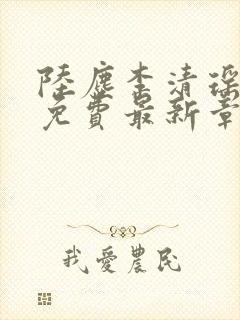 陸塵李清瑤
免費最新章
我愛農民